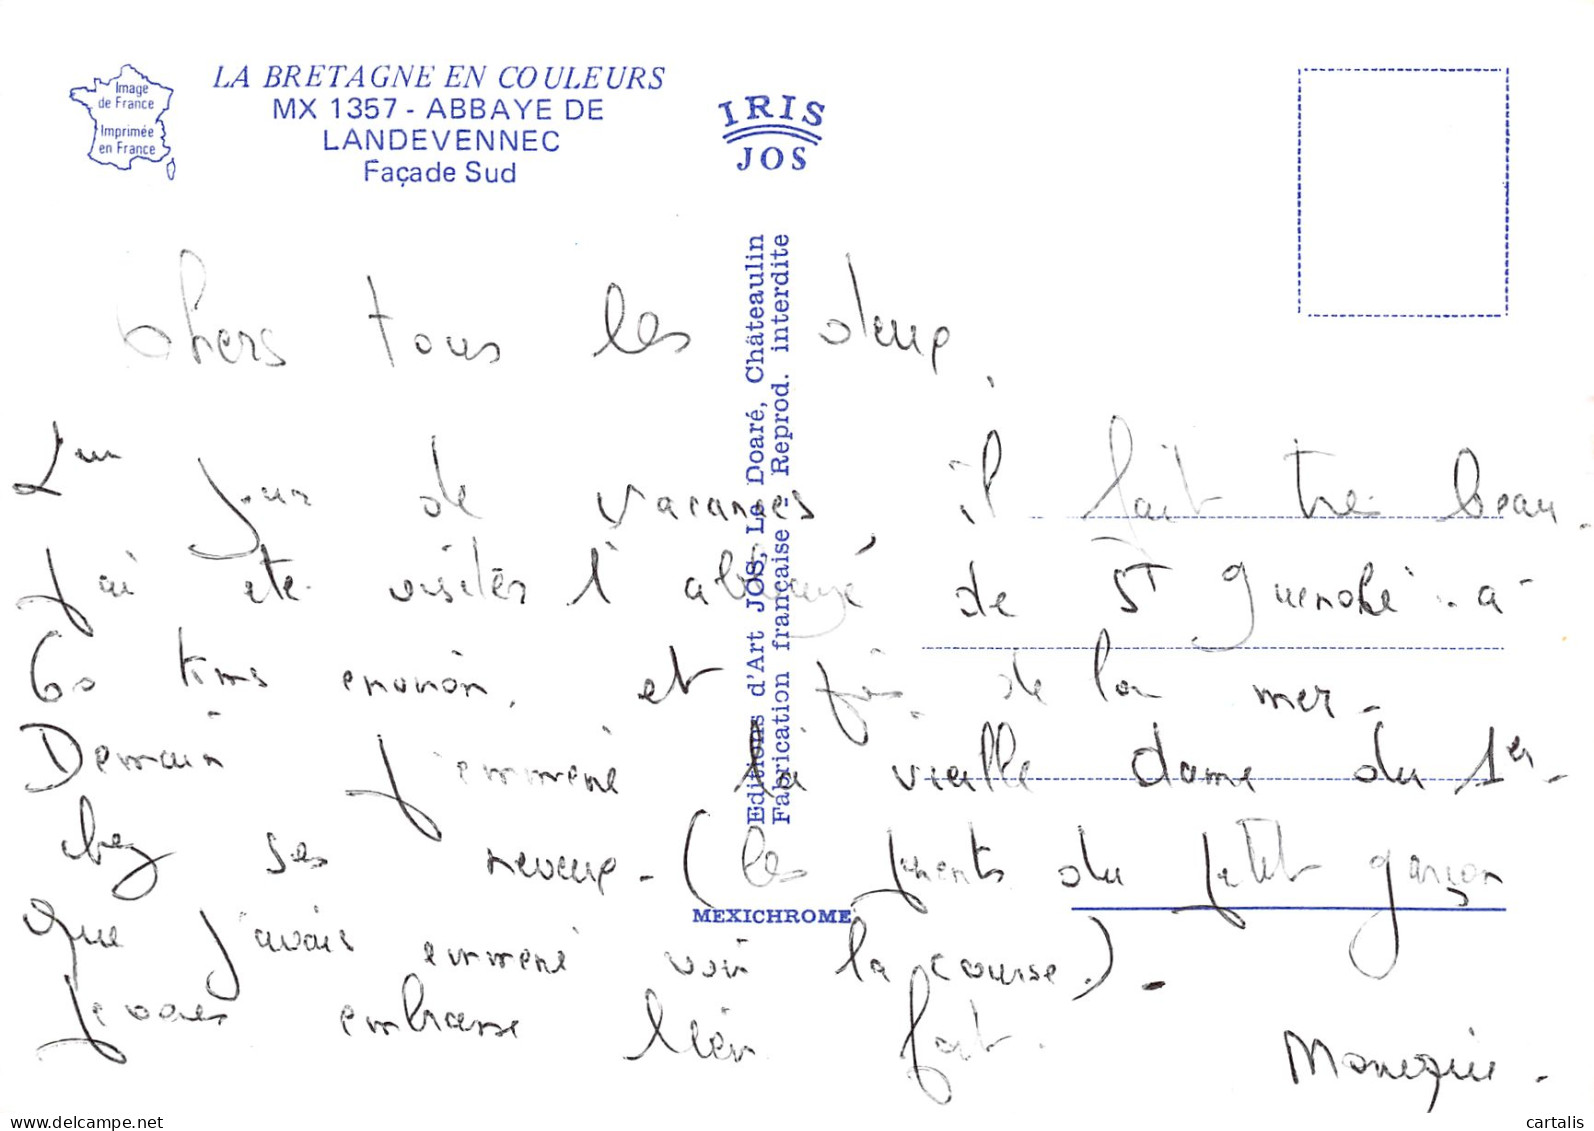 Image
de France
Imprimée
en France
LA BRETAGNE EN COULEURS
MX 1357 - ABBAYE DE
LANDEVENNEC
Façade Sud
IRIS
JOS
Editions d'Art JOS, Le Doaré, Châteaulin
Fabrication française - Reprod. interdite
MEXICHROME
Chers tous les deux,
jour de vacances, il fait très beau.
J'ai été visiter l'abbaye de St Guénolé à
60 kms environ, et près de la mer.
Demain j'emmène la vieille dame du 1er
chez ses neveux - (les parents du petit garçon
que j'avais emmené voir la course). -
Je vous embrasse bien fort.
cartalis